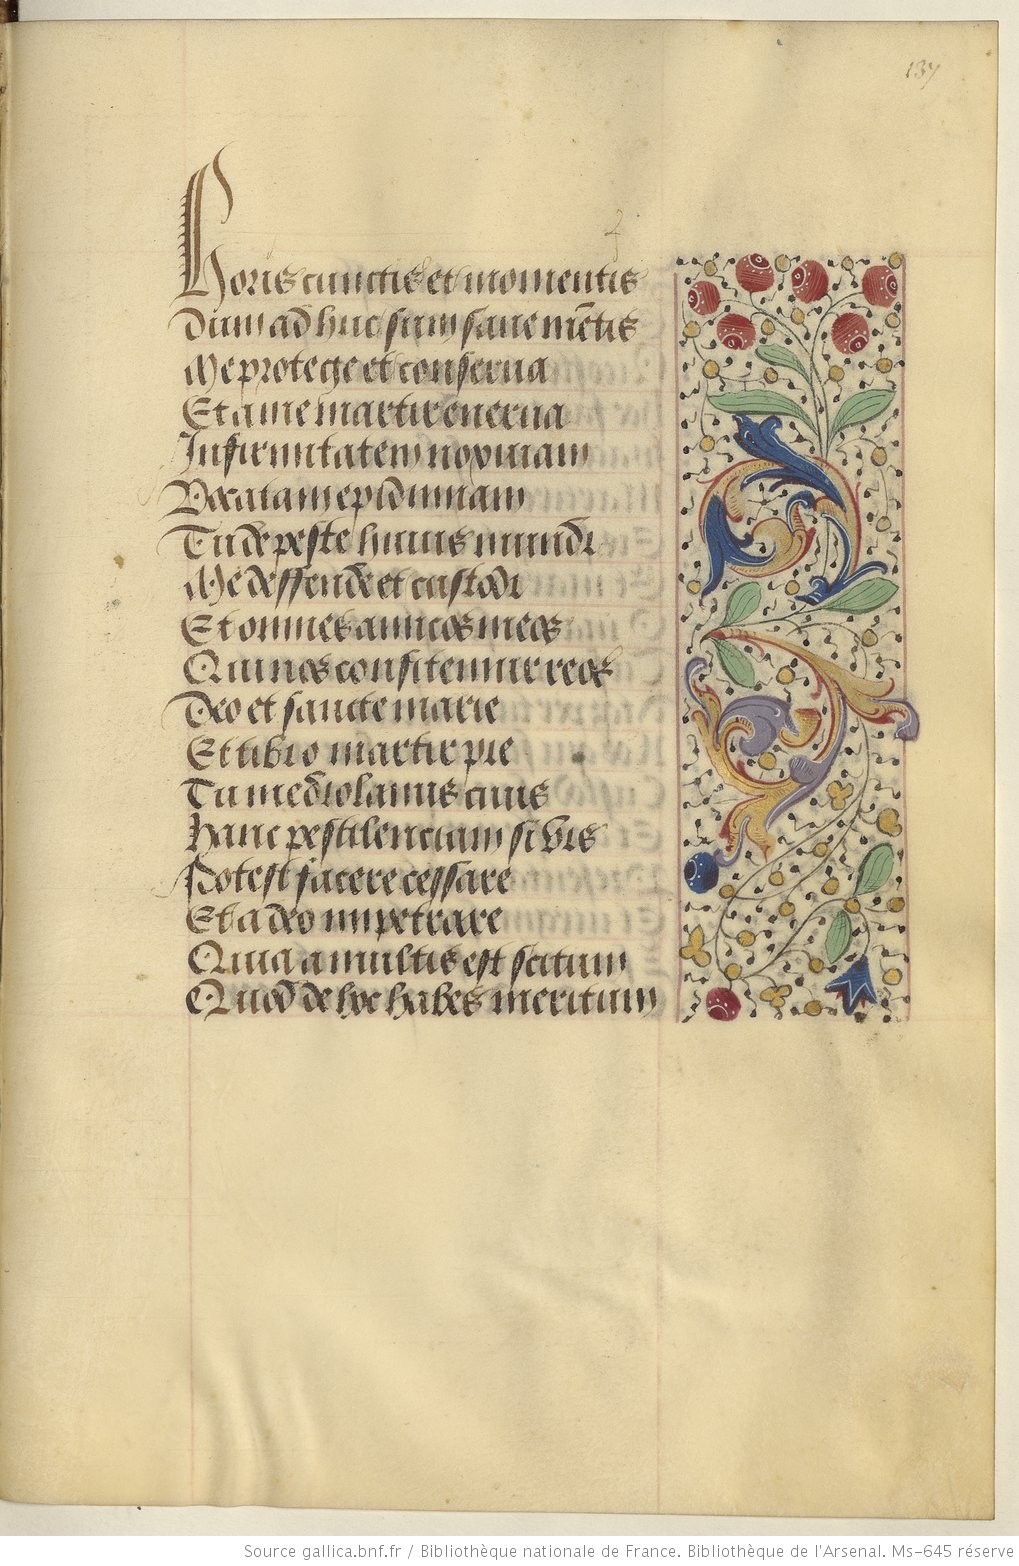 137
Horis cunctis et momentis
Dum adhuc sum sane mētis
Me protege et conserua
Et a me martir enerua
Infirmitatem noxiuam
Vocatam epidimiam
Tu de peste huius mundi
Me deffende et custodi
Et omnes amicos meos
Qui nos confitemur reos
Deo et sancte marie
Et tibi o martir pie
Tu mediolanus ciuis
Hanc pestilenciam si vis
Potest facere cessare
Et a deo impetrare
Quia a multis est scitum
Quod de hoc habes meritum
Source gallica.bnf.fr / Bibliothèque nationale de France. Bibliothèque de l'Arsenal. Ms-645 réserve